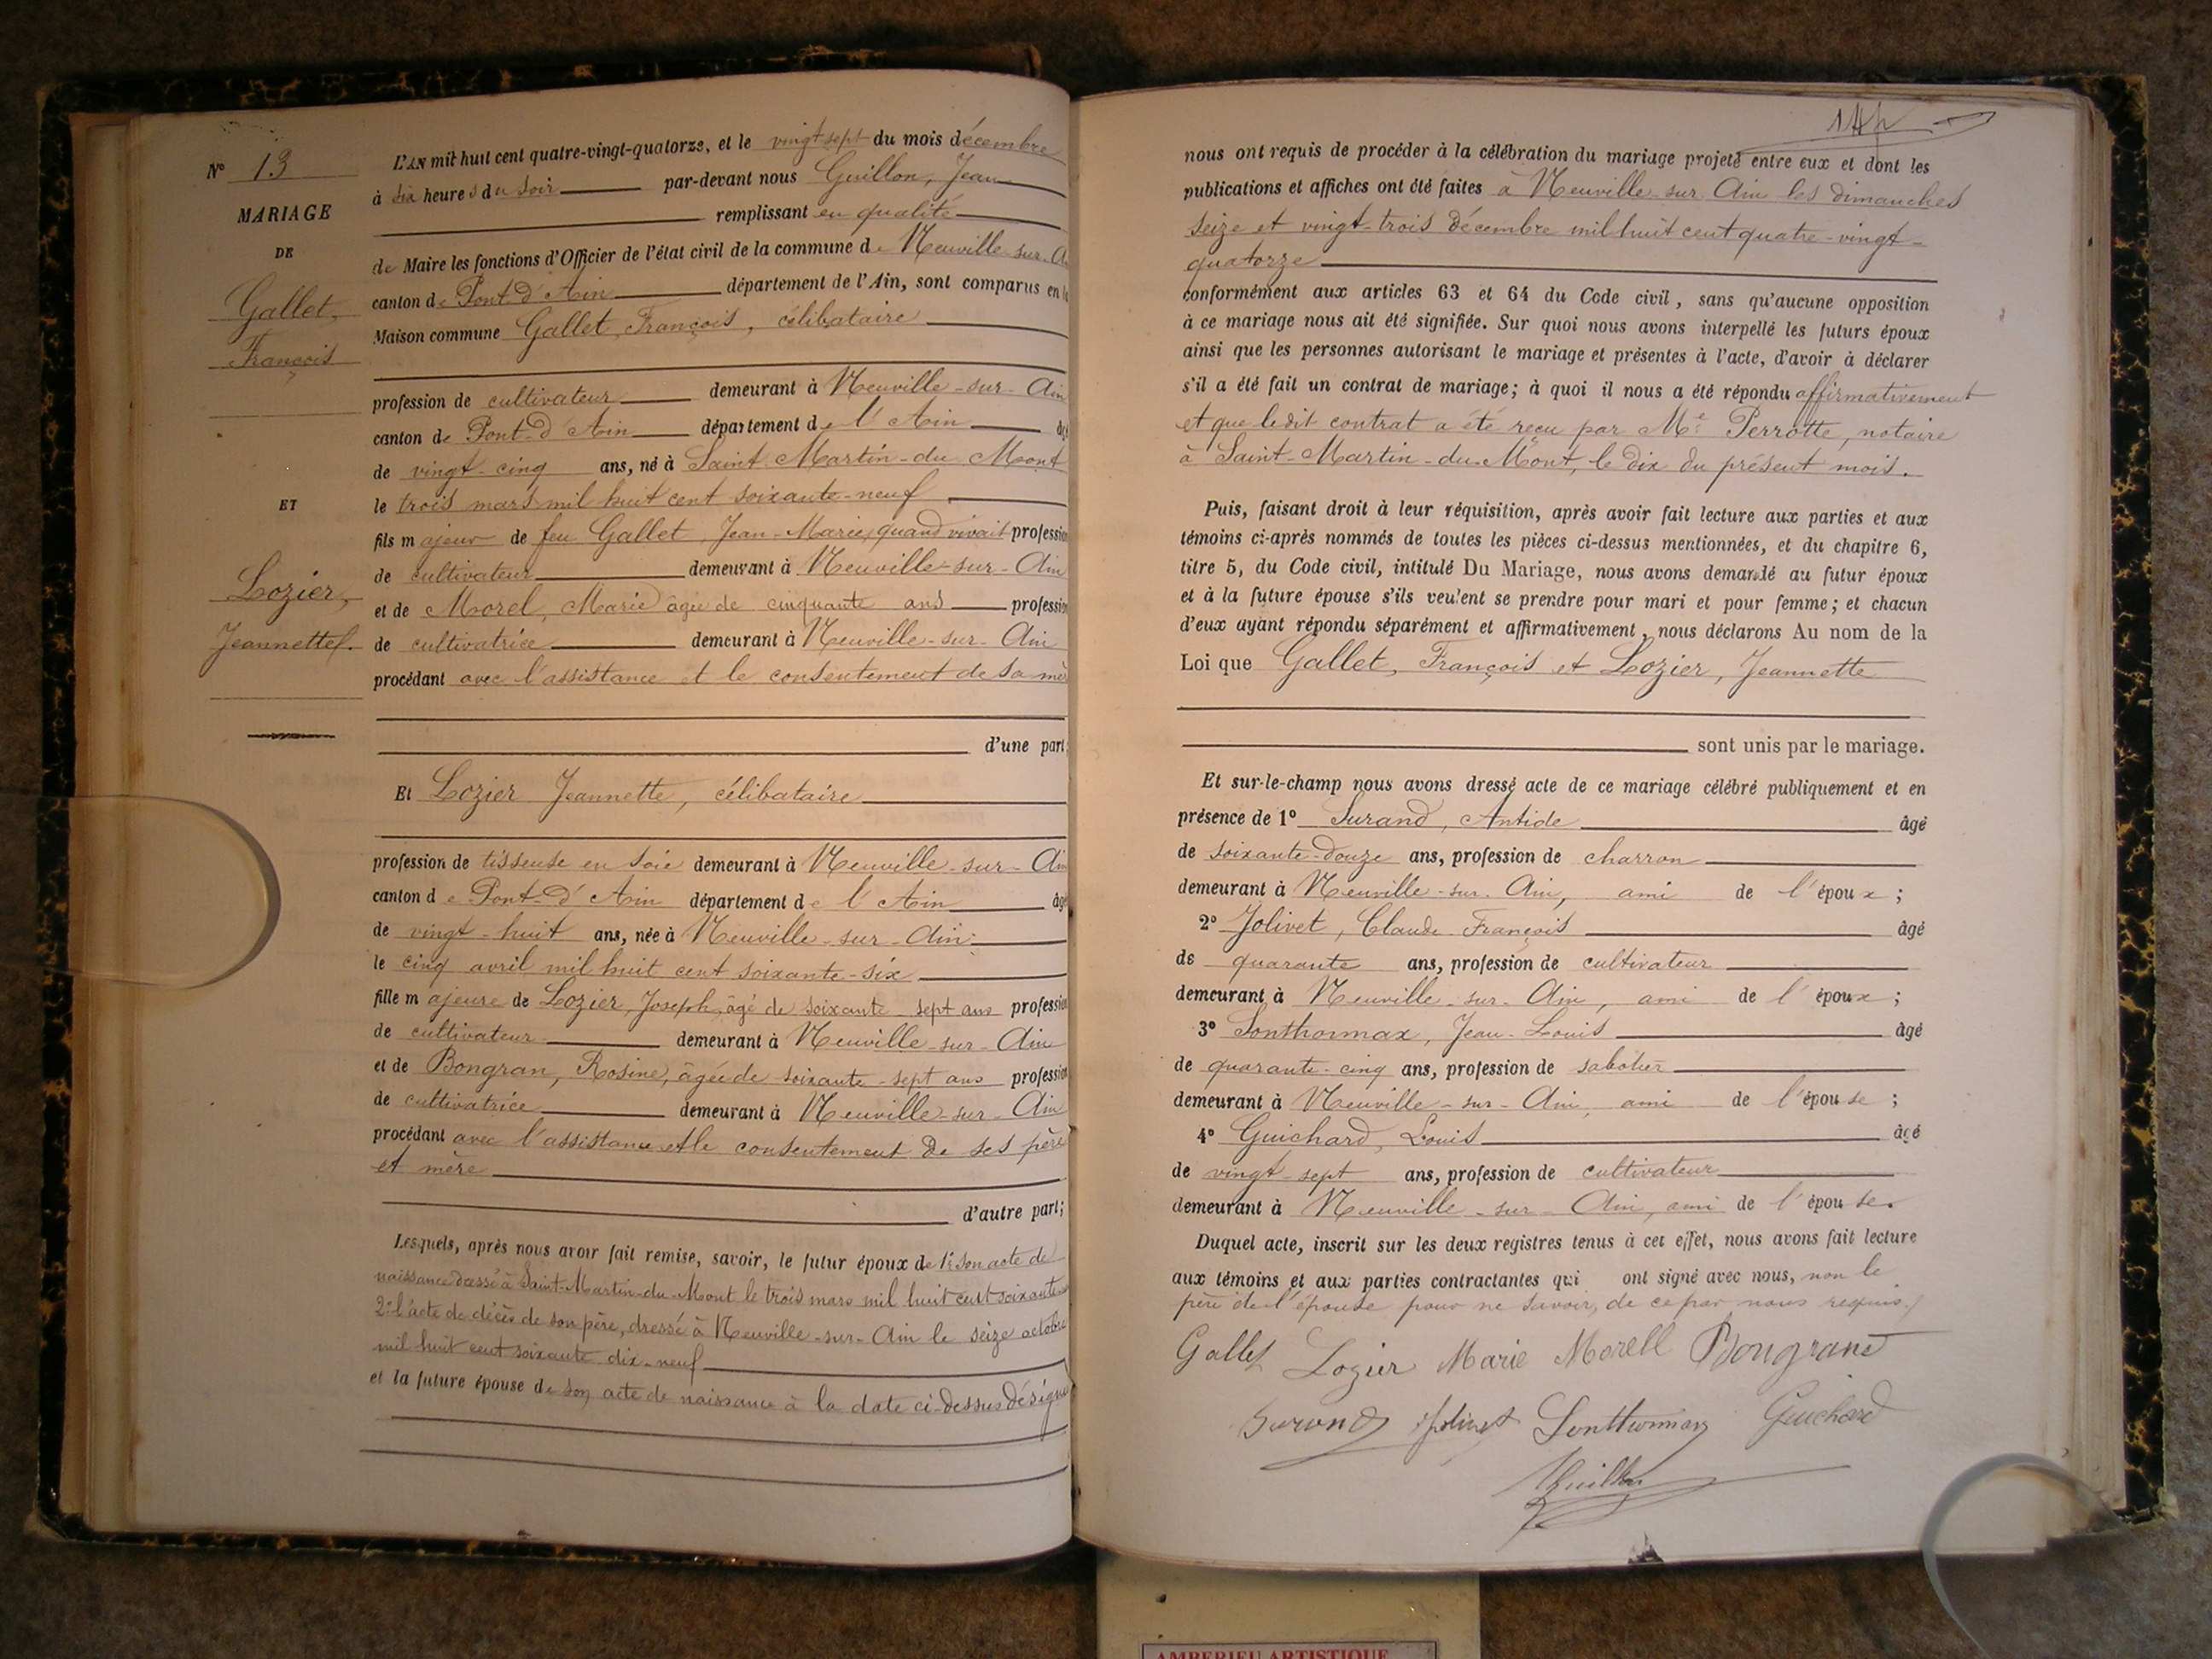 N° 13
MARIAGE
DE
Gallet,
François
ET
Lozier,
Jeannette.
L'AN mil huit cent quatre-vingt-quatorze, et le vingt sept du mois décembre
à six heures du soir par-devant nous Guillon, Jean
remplissant en qualité
de Maire les fonctions d'Officier de l'état civil de la commune de Neuville-sur-A
canton de Pont-d'Ain département de l'Ain, sont comparus en la
Maison commune Gallet, François, célibataire
profession de cultivateur demeurant à Neuville-sur-Ain
canton de Pont-d'Ain département de l'Ain âgé
de vingt-cinq ans, né à Saint-Martin-du-Mont
le trois mars mil huit cent soixante-neuf
fils majeur de feu Gallet, Jean-Marie, quand vivait profession
de cultivateur demeurant à Neuville-sur-Ain
et de Morel, Marie âgée de cinquante ans profession
de cultivatrice demeurant à Neuville-sur-Ain
procédant avec l'assistance et le consentement de sa mè
d'une part;
Et Lozier Jeannette, célibataire
profession de tisseuse en soie demeurant à Neuville-sur-Ain
canton de Pont-d'Ain département de l'Ain âgé
de vingt-huit ans, née à Neuville-sur-Ain
le cinq avril mil huit cent soixante-six
fille majeure de Lozier, Joseph, âgé de soixante-sept ans profession
de cultivateur demeurant à Neuville-sur-Ain
et de Bongran, Rosine, âgée de soixante-sept ans profession
de cultivatrice demeurant à Neuville-sur-Ain
procédant avec l'assistance et le consentement de ses père
et mère
d'autre part;
Lesquels, après nous avoir fait remise, savoir, le futur époux de 1° son acte de
naissance dressé à Saint-Martin-du-Mont le trois mars mil huit cent soixante
2° l'acte de décès de son père, dressé à Neuville-sur-Ain le seize octobre
mil huit cent soixante dix-neuf
et la future épouse de son acte de naissance à la date ci-dessus désigné
nous ont requis de procéder à la célébration du mariage projeté entre eux et dont les
publications et affiches ont été faites à Neuville-sur-Ain les dimanches
seize et vingt-trois décembre mil huit cent quatre-vingt-
quatorze
conformément aux articles 63 et 64 du Code civil, sans qu'aucune opposition
à ce mariage nous ait été signifiée. Sur quoi nous avons interpellé les futurs époux
ainsi que les personnes autorisant le mariage et présentes à l'acte, d'avoir à déclarer
s'il a été fait un contrat de mariage; à quoi il nous a été répondu affirmativement
et que ledit contrat a été reçu par Me Perrotte, notaire
à Saint-Martin-du-Mont, le dix du présent mois.
Puis, faisant droit à leur réquisition, après avoir fait lecture aux parties et aux
témoins ci-après nommés de toutes les pièces ci-dessus mentionnées, et du chapitre 6,
titre 5, du Code civil, intitulé Du Mariage, nous avons demandé au futur époux
et à la future épouse s'ils veulent se prendre pour mari et pour femme; et chacun
d'eux ayant répondu séparément et affirmativement, nous déclarons Au nom de la
Loi que Gallet, François et Lozier, Jeannette
sont unis par le mariage.
Et sur-le-champ nous avons dressé acte de ce mariage célébré publiquement et en
présence de 1° Surand, Antide âgé
de soixante-douze ans, profession de charron
demeurant à Neuville-sur-Ain, ami de l'époux;
2° Jolivet, Claude François âgé
de quarante ans, profession de cultivateur
demeurant à Neuville-sur-Ain, ami de l'époux;
3° Sonthonnax, Jean-Louis âgé
de quarante-cinq ans, profession de sabotier
demeurant à Neuville-sur-Ain, ami de l'épouse;
4° Guichard, Louis âgé
de vingt-sept ans, profession de cultivateur
demeurant à Neuville-sur-Ain, ami de l'épouse.
Duquel acte, inscrit sur les deux registres tenus à cet effet, nous avons fait lecture
aux témoins et aux parties contractantes qui ont signé avec nous, non le
père de l'épouse pour ne savoir, de ce par nous requis.
Gallet Lozier Marie Morell Bongrand
Surand Jolivet Sonthonnax Guichard
Guillon
AMBERIEU ARTISTIQUE